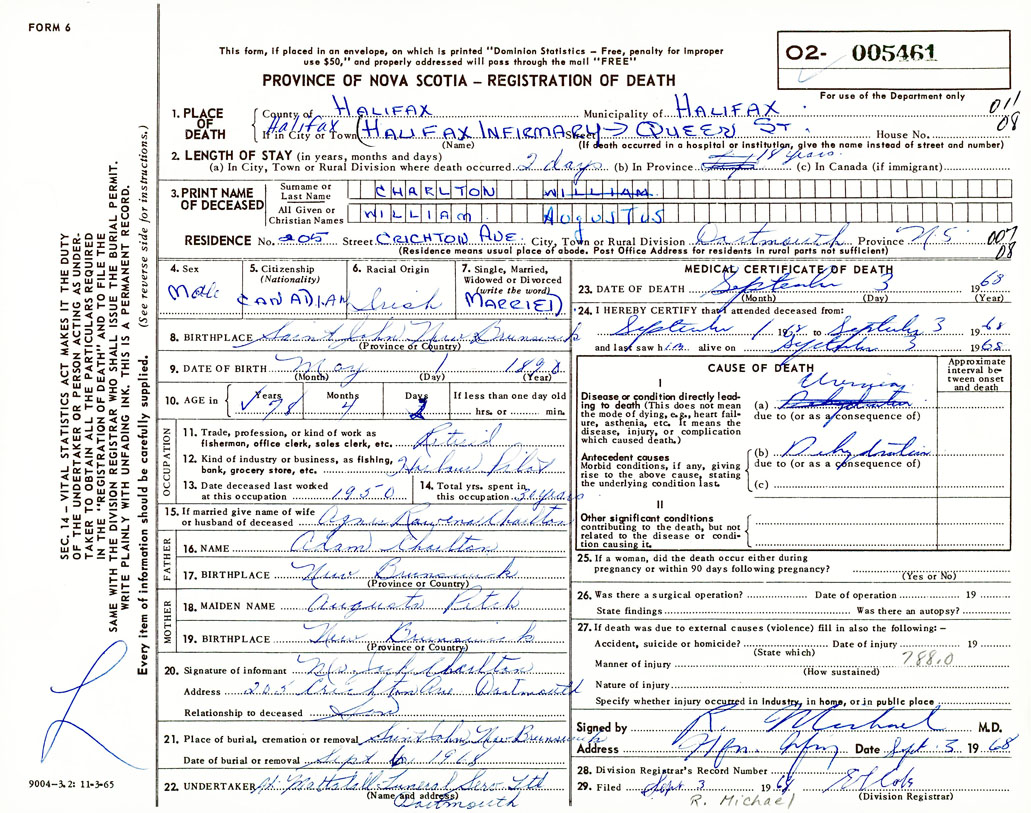 FORM 6
This form, if placed in an envelope, on which is printed "Dominion Statistics – Free, penalty for improper
use $50," and properly addressed will pass through the mail "FREE"
PROVINCE OF NOVA SCOTIA – REGISTRATION OF DEATH
O2- 005461
For use of the Department only
011
08
1. PLACE OF DEATH
County of HALIFAX Municipality of HALIFAX
If in City or Town Halifax (HALIFAX INFIRMARY → Street QUEEN ST. House No.
(Name) (If death occurred in a hospital or institution, give the name instead of street and number)
2. LENGTH OF STAY (in years, months and days)
(a) In City, Town or Rural Division where death occurred 2 days (b) In Province 18 years (c) In Canada (if immigrant)
3. PRINT NAME OF DECEASED
Surname or Last Name CHARLTON WILLIAM
All Given or Christian Names WILLIAM AUGUSTUS
RESIDENCE No. 205 Street CRICHTON AVE. City, Town or Rural Division Dartmouth Province N.S.
007
08
(Residence means usual place of abode. Post Office Address for residents in rural parts not sufficient)
4. Sex
Male
5. Citizenship (Nationality)
CANADIAN
6. Racial Origin
Irish
7. Single, Married, Widowed or Divorced (write the word)
MARRIED
8. BIRTHPLACE Saint John New Brunswick
(Province or Country)
9. DATE OF BIRTH May 1 1890
(Month) (Day) (Year)
10. AGE in Years 78 Months 4 Days 2 If less than one day old
hrs. or min.
OCCUPATION
11. Trade, profession, or kind of work as
fisherman, office clerk, sales clerk, etc. Retired
12. Kind of industry or business, as fishing,
bank, grocery store, etc. Harbour Pilot
13. Date deceased last worked
at this occupation 1950
14. Total yrs. spent in
this occupation 30 years
15. If married give name of wife
or husband of deceased Agnes Charlton
FATHER
16. NAME Adam Charlton
17. BIRTHPLACE New Brunswick
(Province or Country)
MOTHER
18. MAIDEN NAME Augusta
19. BIRTHPLACE New Brunswick
(Province or Country)
20. Signature of informant Charlton
Address 205 Crichton Ave Dartmouth
Relationship to deceased Son
21. Place of burial, cremation or removal Saint John New Brunswick
Date of burial or removal Sept 6 1968
22. UNDERTAKER Funeral Serv Ltd
(Name and address)
Dartmouth
MEDICAL CERTIFICATE OF DEATH
23. DATE OF DEATH September 3 1968
(Month) (Day) (Year)
24. I HEREBY CERTIFY that I attended deceased from:
September 1 1968 to September 3 1968
and last saw him alive on September 3 1968
CAUSE OF DEATH
Approximate interval between onset and death
I
Disease or condition directly leading to death (This does not mean the mode of dying, e.g., heart failure, asthenia, etc. It means the disease, injury, or complication which caused death.)
(a) Dehydration
due to (or as a consequence of)
Antecedent causes
Morbid conditions, if any, giving rise to the above cause, stating the underlying condition last.
(b) Dehydration
due to (or as a consequence of)
(c)
II
Other significant conditions
contributing to the death, but not
related to the disease or condition causing it.
25. If a woman, did the death occur either during
pregnancy or within 90 days following pregnancy?
(Yes or No)
26. Was there a surgical operation? Date of operation 19
State findings Was there an autopsy?
27. If death was due to external causes (violence) fill in also the following: –
Accident, suicide or homicide? Date of injury 19
(State which)
788.0
Manner of injury
(How sustained)
Nature of injury
Specify whether injury occurred in Industry, in home, or in public place
Signed by R. Michael M.D.
Address Hfx. Infmy Date Sept. 3 1968
28. Division Registrar's Record Number
29. Filed Sept 3 1968
(Division Registrar)
R. Michael
SEC. 14 – VITAL STATISTICS ACT MAKES IT THE DUTY
OF THE UNDERTAKER OR PERSON ACTING AS UNDERTAKER TO OBTAIN ALL THE PARTICULARS REQUIRED
IN THE "REGISTRATION OF DEATH" AND TO FILE THE
SAME WITH THE DIVISION REGISTRAR WHO SHALL ISSUE THE BURIAL PERMIT.
WRITE PLAINLY WITH UNFADING INK. THIS IS A PERMANENT RECORD.
Every item of information should be carefully supplied. (See reverse side for instructions.)
9004–3.2: 11-3-65